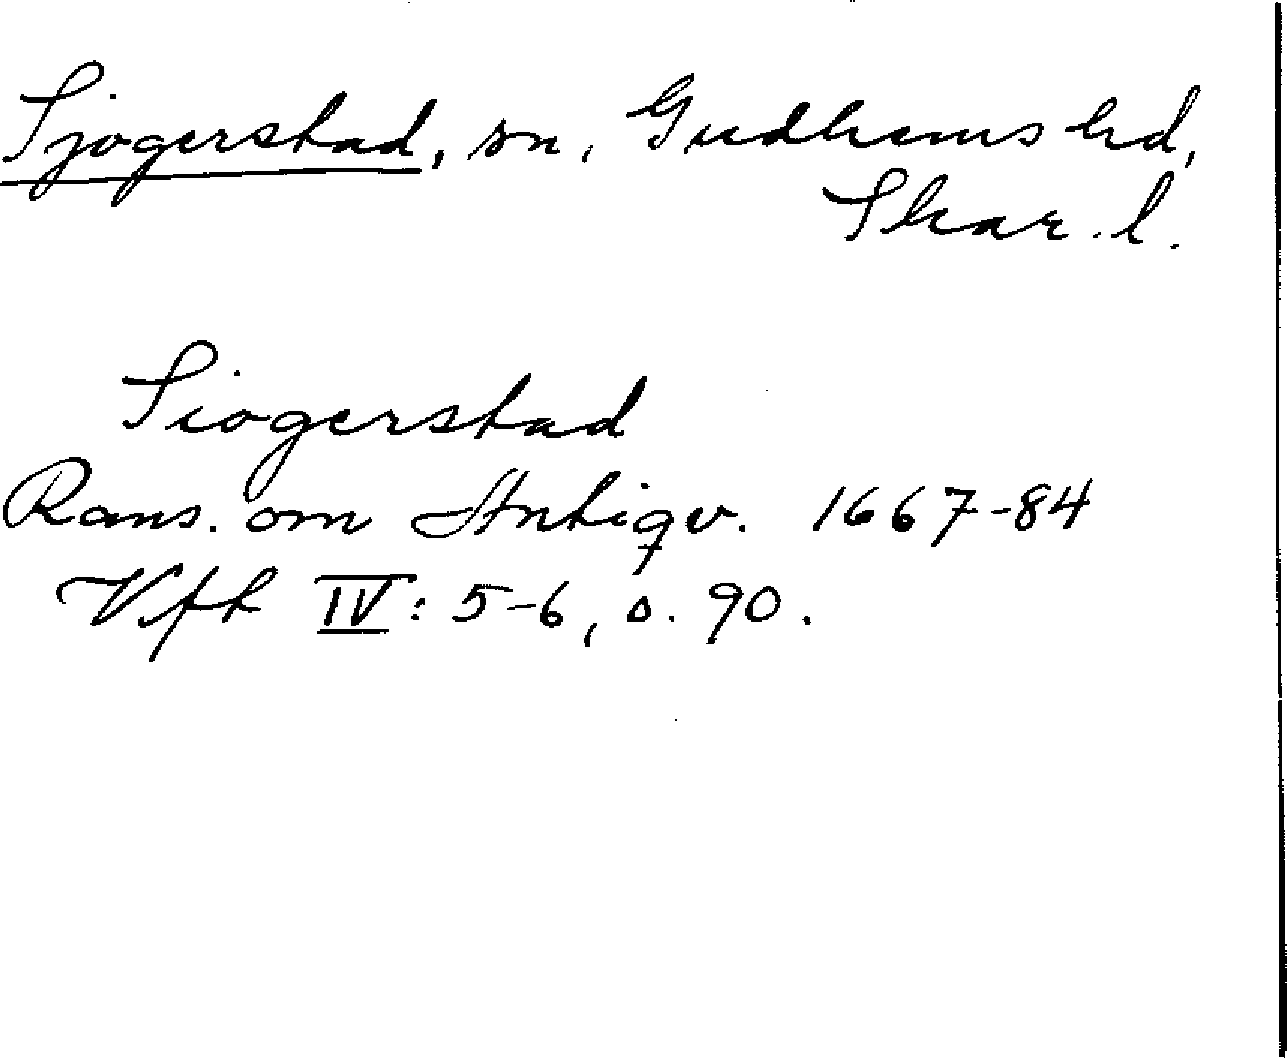 Sjogerstad, sn, Gudhems hd,
Skar. l.
Siogerstad
Rans. om Antiqv. 1667-84
Vft IV: 5-6, s. 90.